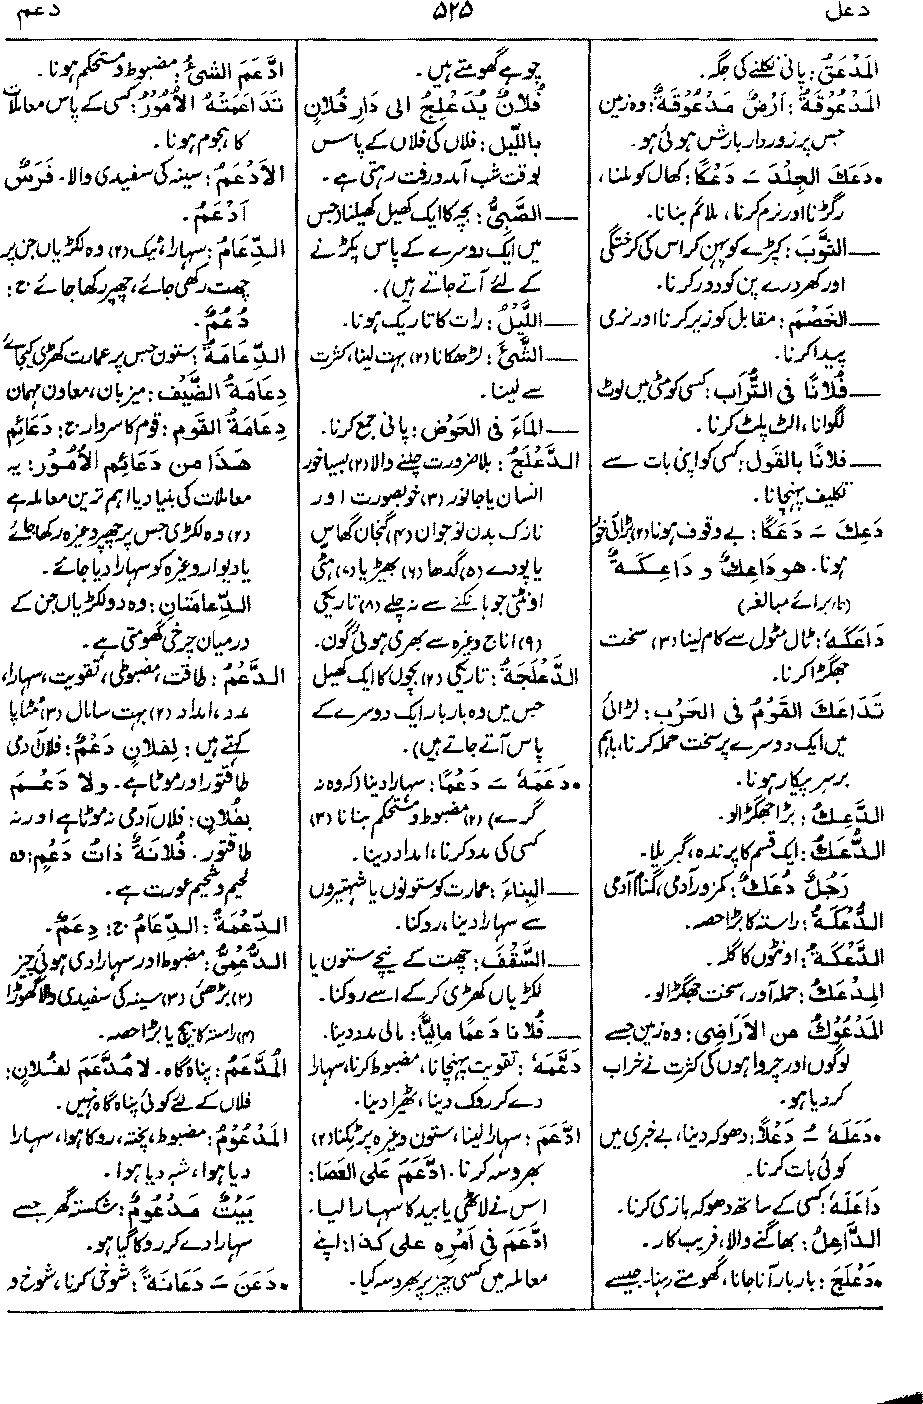 دعل
۵۲۵
دعم
المَدْعَقُ: پانی نکلنے کی جگہ۔
المَدْعُوقَةُ: أَرْضٌ مَدْعُوقَةٌ: وہ زمین
جس پر زوردار بارش ہوئی ہو۔
•دَعَكَ الجِلْدَ ـَ دَعْكًا: کھال کو ملنا،
رگڑنا اور نرم کرنا، ملائم بنانا۔
ــ الثَّوْبَ: کپڑے کو پہن کر اس کی کرختگی
اور کھردرے پن کو دور کرنا۔
ــ الخَصْمَ: مقابل کو زیر کرنا اور نرمی
پیدا کرنا۔
ــ فُلَانًا فِی التُّرَابِ: کسی کو مٹی میں لوٹ
لگوانا، الٹ پلٹ کرنا۔
ــ فلانًا بالقَول: کسی کو اپنی بات سے
تکلیف پہنچانا۔
دَعِكَ ـَ دَعَكًا: بے وقوف ہونا (۲) لڑائی خور
ہونا۔ هو دَاعِكٌ و دَاعِكَةٌ
(تا، برائے مبالغہ)
دَاعَكَهُ: ٹال مٹول سے کام لینا (۳) سخت
جھگڑا کرنا۔
تَدَاعَكَ القَوْمُ فی الحَرْب: لڑائی
میں ایک دوسرے پر سخت حملہ کرنا، باہم
برسر پیکار ہونا۔
الدَّعِكُ: بڑا جھگڑالو۔
الدُّعَكُ: ایک قسم کا پرندہ، گبریلا۔
رَجُلٌ دُعَكٌ: کمزور آدمی، گمنام آدمی
الدُّعْكَةُ: راستہ کا بڑا حصہ۔
الدَّعْكَةُ: اونٹوں کا گلہ۔
المِدْعَكُ: حملہ آور، سخت جھگڑالو۔
المَدْعُوكُ من الأَرَاضِی: وہ زمین جسے
لوگوں اور چرواہوں کی کثرت نے خراب
کر دیا ہو۔
•دَعَلَهُ ـَ دَعْلًا: دھوکہ دینا، بے خبری میں
کوئی بات کرنا۔
دَاعَلَهُ: کسی کے ساتھ دھوکہ بازی کرنا۔
الدَّاعِلُ: بھاگنے والا، فریب کار۔
•دَعْلَجَ: بار بار آنا جانا، گھومتے رہنا۔ جیسے
چوہے گھومتے ہیں۔
فُلَانٌ يُدَعْلِجُ الی دَارِ فُلَانٍ
بِاللَّيل: فلاں کی فلاں کے پاس
بوقت شب آمد و رفت رہتی ہے۔
ــ الصَّبِیُّ: بچہ کا ایک کھیل کھیلنا (جس
میں ایک دوسرے کے پاس پکڑنے
کے لئے آتے جاتے ہیں)۔
ــ اللَّيْلُ: رات کا تاریک ہونا۔
ــ الشَّیْءَ: لڑھکانا (۲) بہت لینا، کثرت
سے لینا۔
ــ المَاءَ فی الحَوْضِ: پانی جمع کرنا۔
الدَّعْلَجُ: بلا ضرورت چلنے والا (۲) بسیار خور
انسان یا جانور (۳) خوبصورت اور
نازک بدن نوجوان (۴) گنجان گھاس
یا پودے (۵) گدھا (۶) بھیڑیا (۷)
اونٹنی جو ہانکنے سے نہ چلے (۸) تاریکی
(۹) اناج وغیرہ سے بھری ہوئی گون۔
الدَّعْلَجَةُ: تاریکی (۲) بچوں کا ایک کھیل
جس میں وہ بار بار ایک دوسرے کے
پاس آتے جاتے ہیں۔
•دَعَمَهُ ـَ دَعْمًا: سہارا دینا (کہ وہ نہ
گرے) (۲) مضبوط و مستحکم بنانا (۳)
کسی کی مدد کرنا، امداد دینا۔
ــ البِنَاءَ: عمارت کو ستونوں یا شہتیروں
سے سہارا دینا، روکنا۔
ــ السَّقْفَ: چھت کے نیچے ستون یا
لکڑیاں کھڑی کر کے اسے روکنا۔
ــ فُلَانًا دَعْمًا مَالِيًّا: مالی مدد دینا۔
دَعَّمَهُ: تقویت پہنچانا، مضبوط کرنا، سہارا
دے کر روک دینا، ٹھہرا دینا۔
ادَّعَمَ: سہارا لینا، ستون وغیرہ پر ٹکنا (۲)
بھروسہ کرنا۔ ادَّعَمَ عَلَى العَصَا:
اس نے لاٹھی یا بید کا سہارا لیا۔
ادَّعَمَ فی أَمْرِهِ علی كَذَا: اپنے
معاملہ میں کسی چیز پر بھروسہ کیا۔
ادَّعَمَ الشیْءُ: مضبوط و مستحکم ہونا۔
تَدَاعَمَتْهُ الأُمُورُ: کسی کے پاس معاملات
کا ہجوم ہونا۔
الأَدْعَمُ: سینہ کی سفیدی والا۔ فَرَسٌ
أَدْعَمُ۔
الدِّعَامُ: سہارا، ٹیک (۲) وہ لکڑیاں جن پر
چھت رکھی جائے، چھپر رکھا جائے ج:
دُعُمٌ۔
الدِّعَامَةُ: ستون جس پر عمارت کھڑی کیجائے
دِعَامَةُ الضَّيْف: میزبان، معاون مہمان
دِعَامَةُ القَوم: قوم کا سردار ج: دَعَائِم
هَذَا من دَعَائِمِ الأُمُورِ: یہ
معاملات کی بنیاد یا اہم ترین معاملہ ہے
(۲) وہ لکڑی جس پر چھپر وغیرہ رکھا جائے
یا دیوار وغیرہ کو سہارا دیا جائے۔
الدِّعَامَتَانِ: وہ دو لکڑیاں جن کے
درمیان چرخی گھومتی ہے۔
الدَّعْمُ: طاقت، مضبوطی، تقویت، سہارا،
مدد، امداد (۲) بہت سا مال (۳) مٹاپا
کہتے ہیں: لِفُلَانٍ دَعْمٌ: فلاں آدمی
طاقتور اور موٹا ہے۔ ولا دَعْمَ
بِفُلَانٍ: فلاں آدمی نہ موٹا ہے اور نہ
طاقتور۔ فُلَانَةٌ ذَاتُ دَعْمٍ: وہ
لحیم و شحیم عورت ہے۔
الدِّعْمَةُ: الدِّعَامُ ج: دِعَمٌ۔
الدُّعْمِیُّ: مضبوط اور سہارا دی ہوئی چیز
(۲) بڑھئی (۳) سینہ کی سفیدی والا گھوڑا
(۴) راستہ کا بیچ یا بڑا حصہ۔
المُدَّعَمُ: پناہ گاہ۔ لا مُدَّعَمَ لفُلَانٍ:
فلاں کے لئے کوئی پناہ گاہ نہیں۔
المَدْعُوْمُ: مضبوط، پختہ، روکا ہوا، سہارا
دیا ہوا، شہ دیا ہوا۔
بَيْتٌ مَدْعُومٌ: شکستہ گھر جسے
سہارا دے کر روکا گیا ہو۔
•دَعَنَ ـَ دَعَانَةً: شوخی کرنا، شوخ و